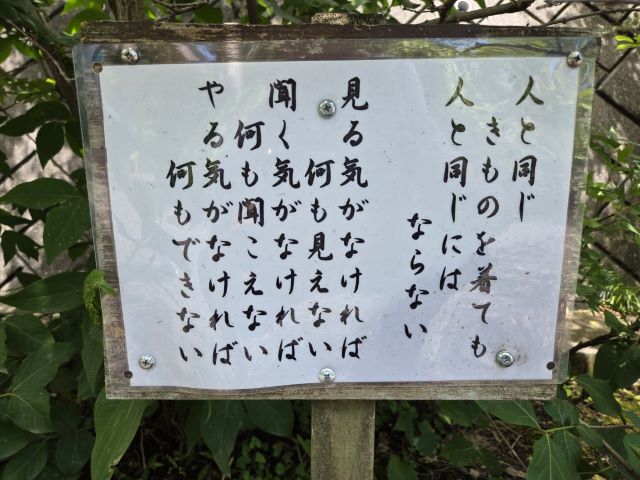 人と同じ
きものを着ても
人と同じには
ならない
見る気がなければ
何も見えない
聞く気がなければ
何も聞こえない
やる気がなければ
何もできない